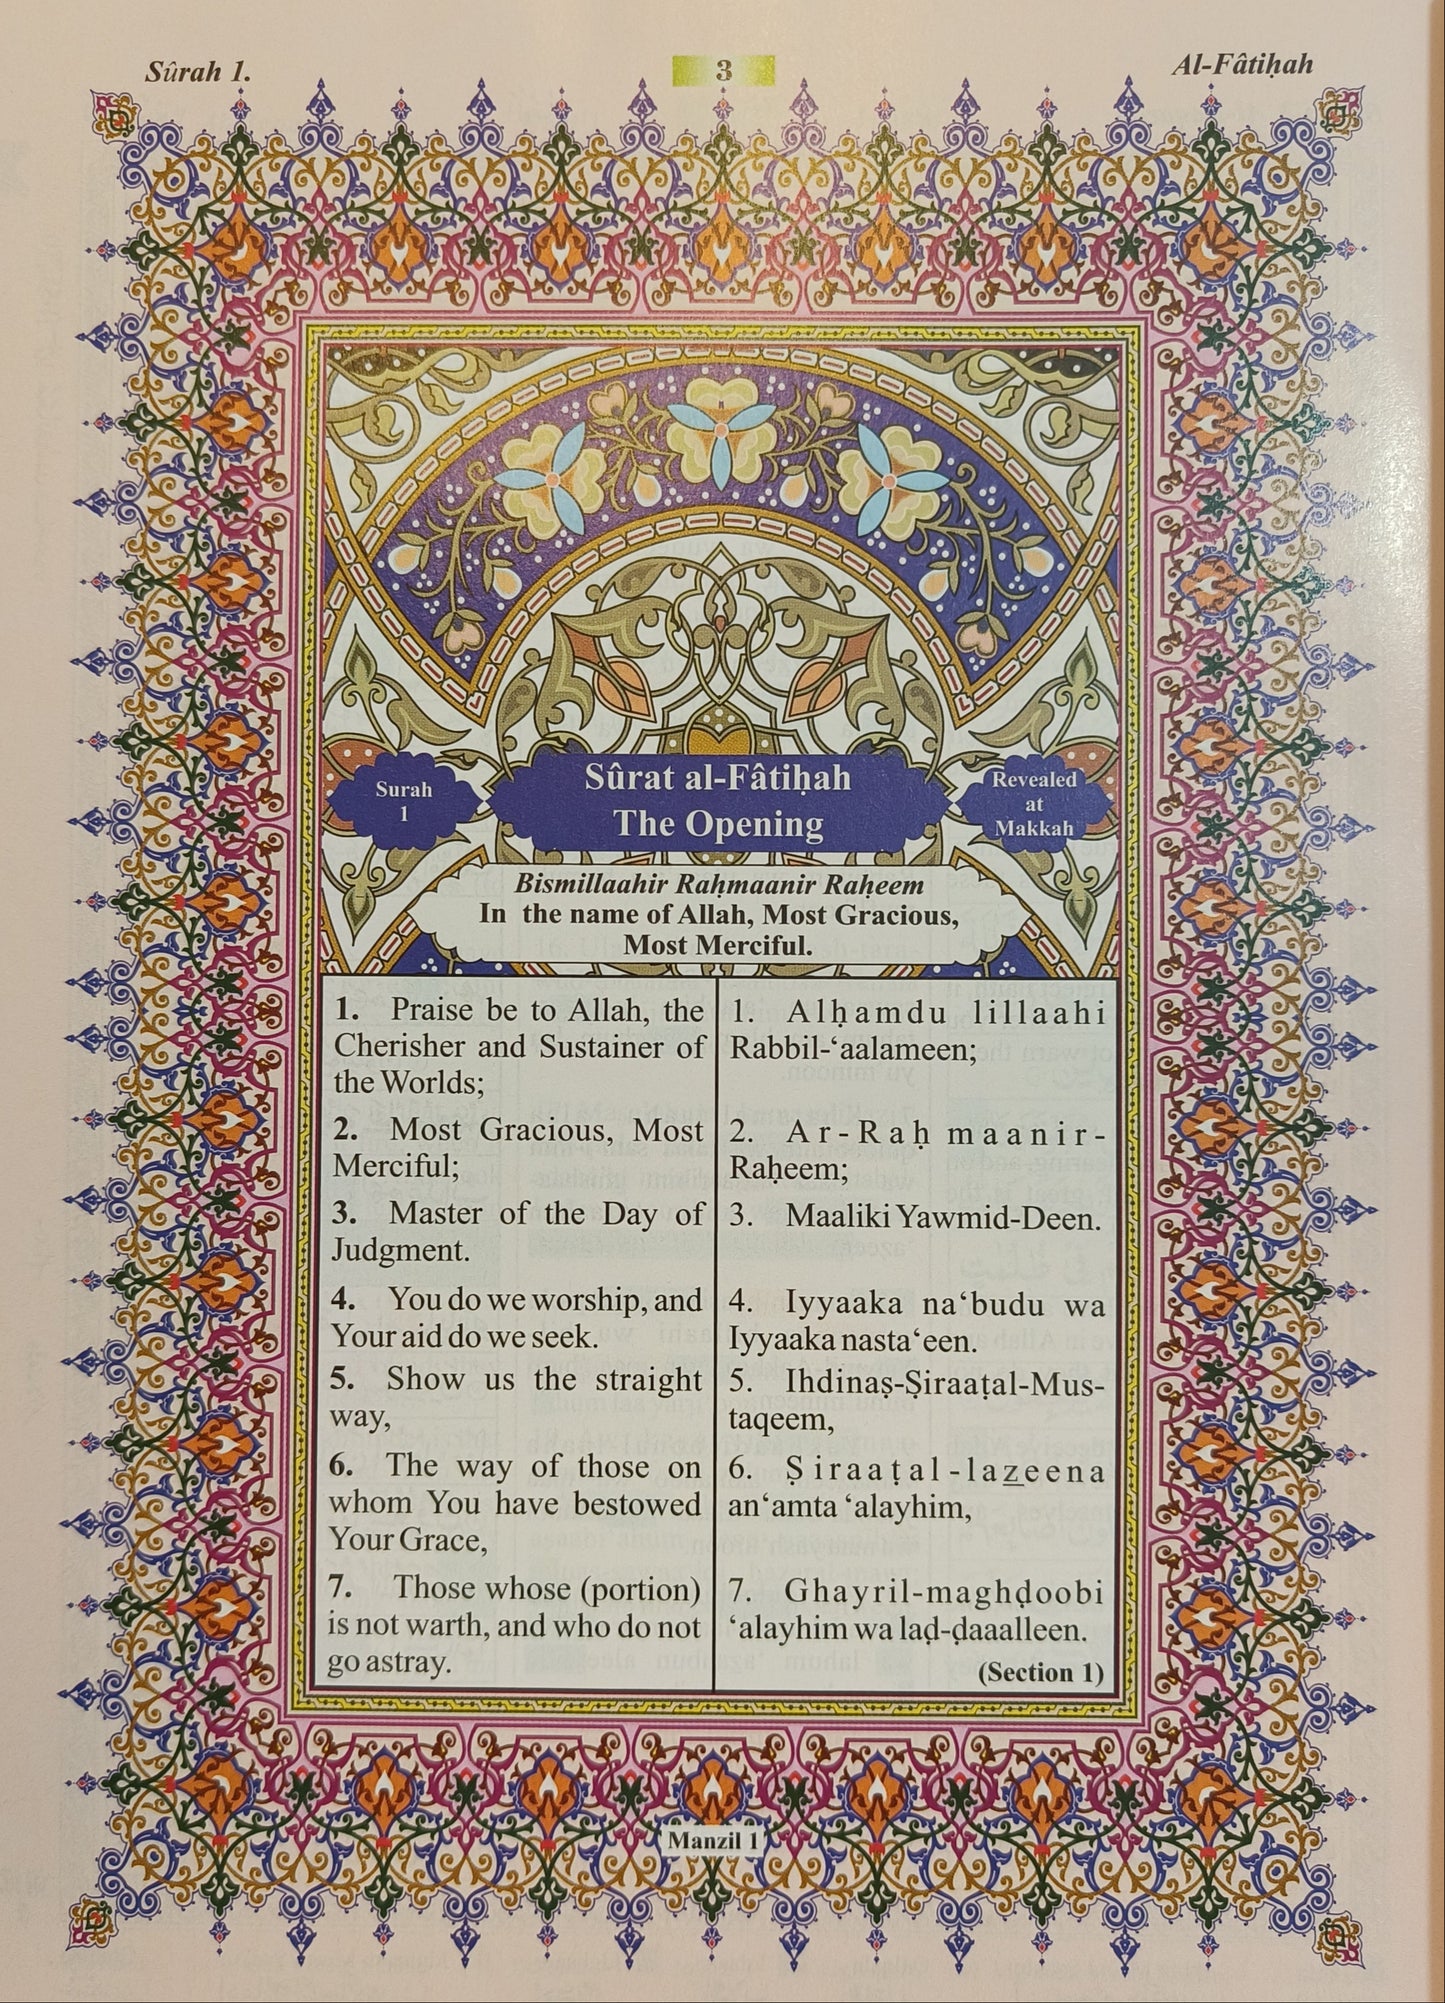 Sûrah 1.
3
Al-Fâtiḥah
Surah
1
Sûrat al-Fâtiḥah
The Opening
Revealed
at
Makkah
Bismillaahir Raḥmaanir Raḥeem
In the name of Allah, Most Gracious,
Most Merciful.
1. Praise be to Allah, the
Cherisher and Sustainer of
the Worlds;
2. Most Gracious, Most
Merciful;
3. Master of the Day of
Judgment.
4. You do we worship, and
Your aid do we seek.
5. Show us the straight
way,
6. The way of those on
whom You have bestowed
Your Grace,
7. Those whose (portion)
is not warth, and who do not
go astray.
1. Alḥamdu lillaahi
Rabbil-‘aalameen;
2. Ar-Raḥmaanir-
Raḥeem;
3. Maaliki Yawmid-Deen.
4. Iyyaaka na‘budu wa
Iyyaaka nasta‘een.
5. Ihdinaṣ-Ṣiraaṭal-Mus-
taqeem,
6. Ṣiraaṭal-lazeena
an‘amta ‘alayhim,
7. Ghayril-maghḍoobi
‘alayhim wa laḍ-ḍaaalleen.
(Section 1)
Manzil 1